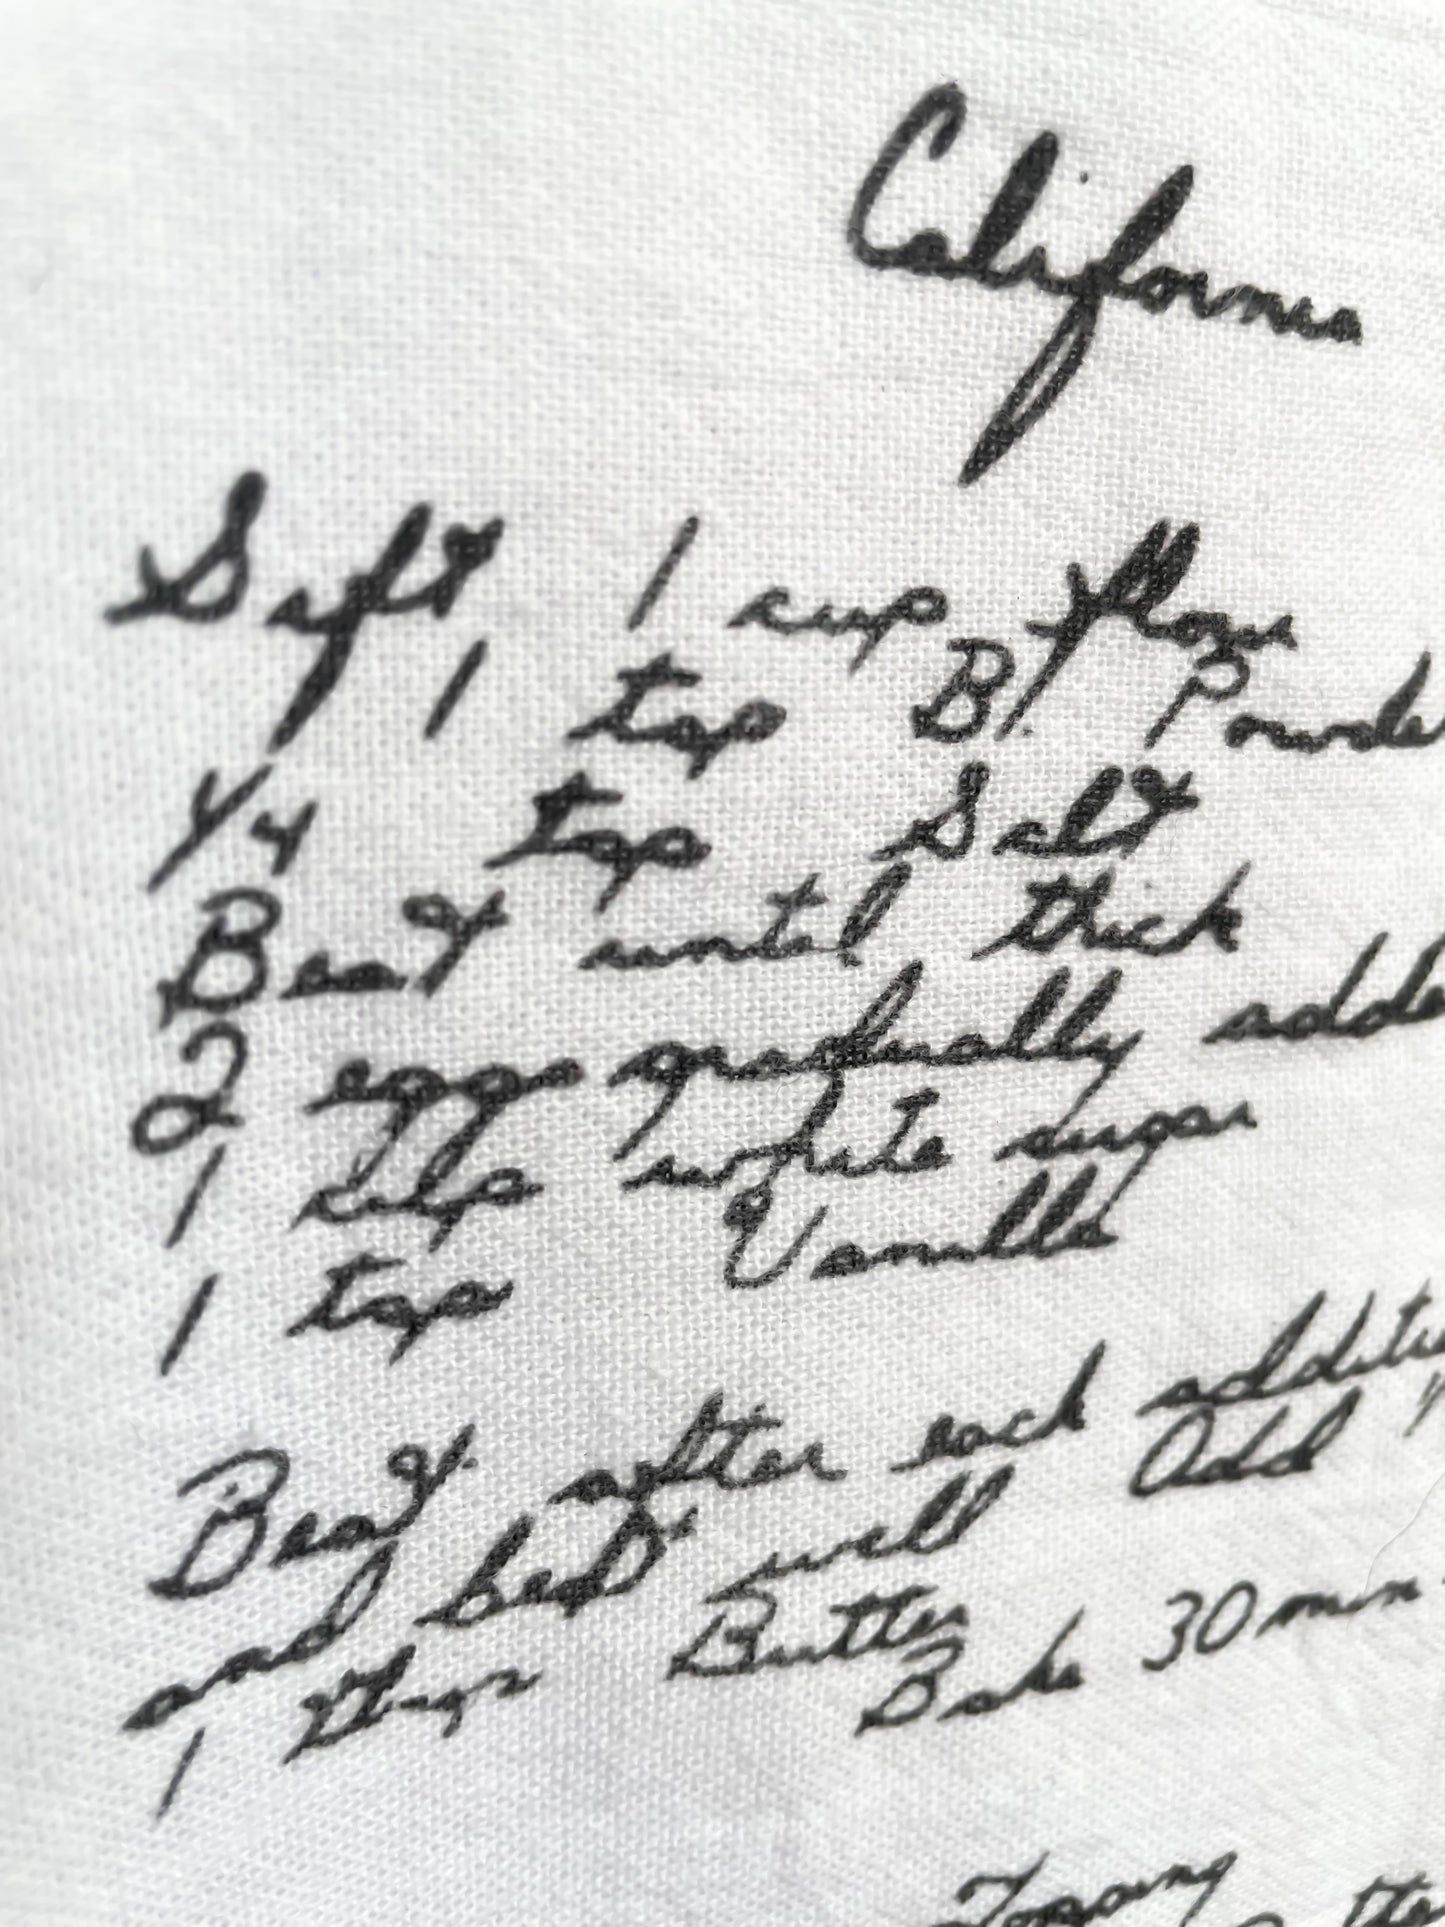 California
Saft 1 cup flour
1 tsp B. Powder
1/4 tsp Salt
Beat until thick
2 eggs gradually adde
1 cup white sugar
1 tsp Vanilla
Beat after each additi
and beat well Add
1 tbsp Butter
Bake 30 min
Topping